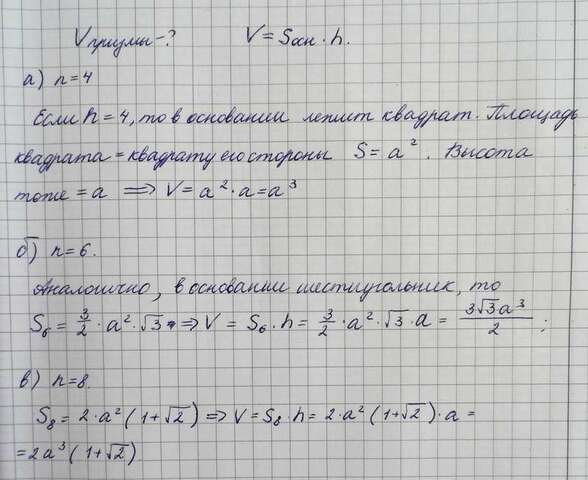 Vпризмы-? V = Sосн · h.
а) n=4
Если n=4, то в основании лежит квадрат. Площадь
квадрата = квадрату его стороны S = a². Высота
тоже = a ⟹ V = a² · a = a³
б) n=6.
Аналогично, в основании шестиугольник, то
S₆ = 3/2 · a² · √3 ⟹ V = S₆ · h = 3/2 · a² · √3 · a = 3√3a³/2 ;
в) n=8.
S₈ = 2 · a² (1+√2) ⟹ V = S₈ · h = 2 · a² (1+√2) · a =
= 2a³ (1+√2)